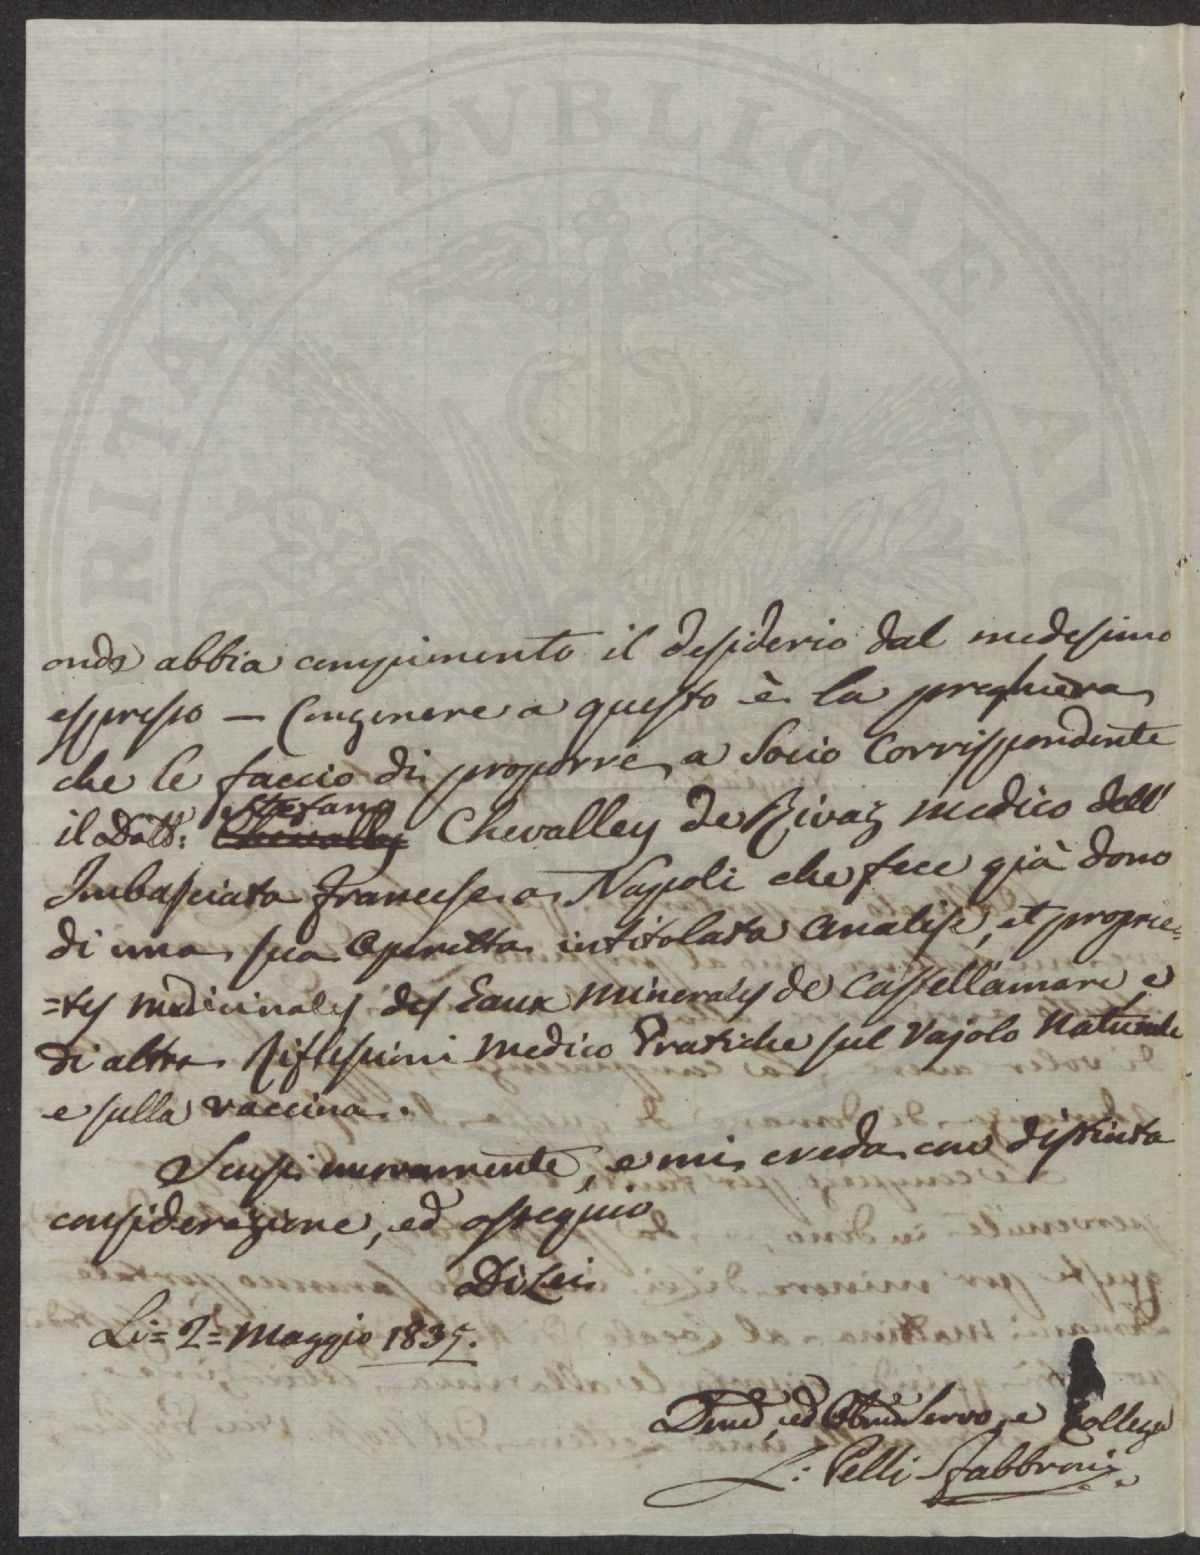 onde abbia compimento il desiderio dal medesimo
espresso — Congenere a questo è la preghiera
che le faccio di proporre a Socio Corrispondente
il Dott: Stefano Chevalley de Rivaz medico dell'
Imbasciata francese a Napoli che fece già dono
di una sua Operetta intitolata Analise, et proprie=
=tes medicinales des Eaux Minerales de Castellamare e
di altre Riflessioni Medico Pratiche sul Vajolo Naturale
e sulla vaccina.
Scusi nuovamente, e mi creda con distinta
considerazione, ed ossequio
Di Lei
Li= 2= Maggio 1835.
Devo, ed Obbmo Servo, e Collega
L: Pelli Fabbroni